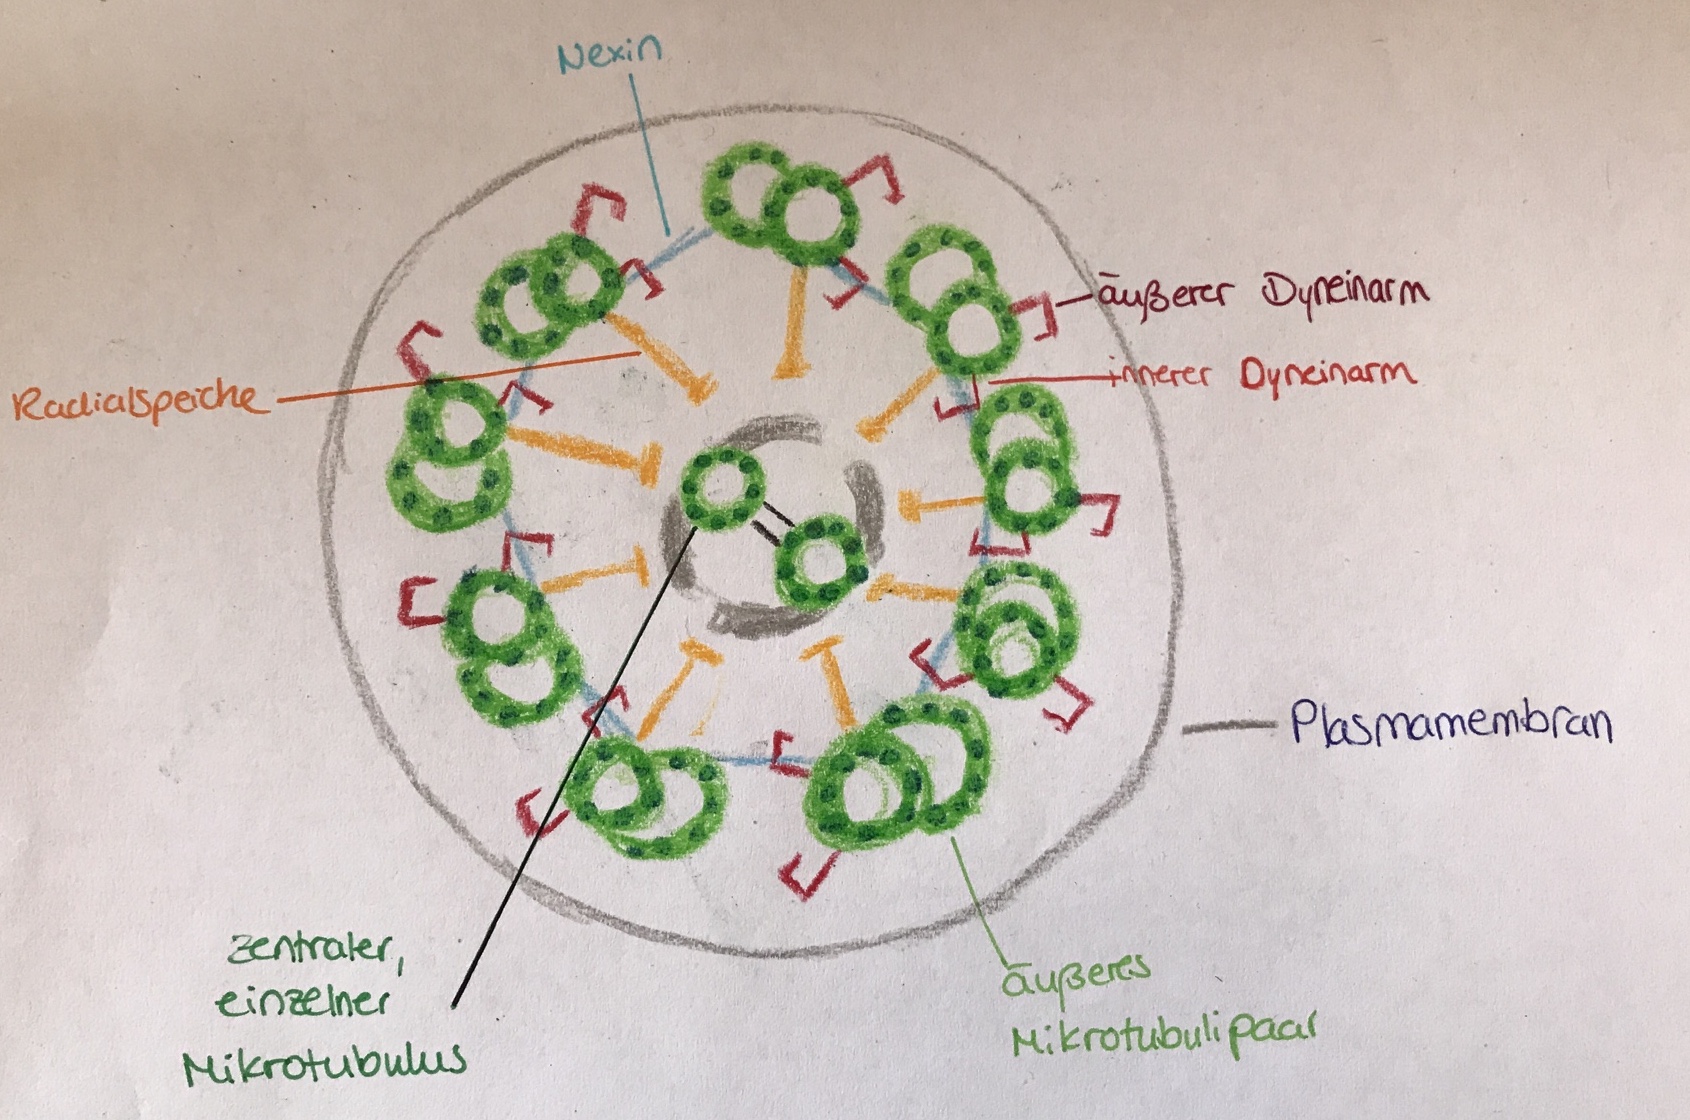 Nexin
äußerer Dyneinarm
innerer Dyneinarm
Radialspeiche
Plasmamembran
zentraler,
einzelner
Mikrotubulus
äußeres
Mikrotubulipaar